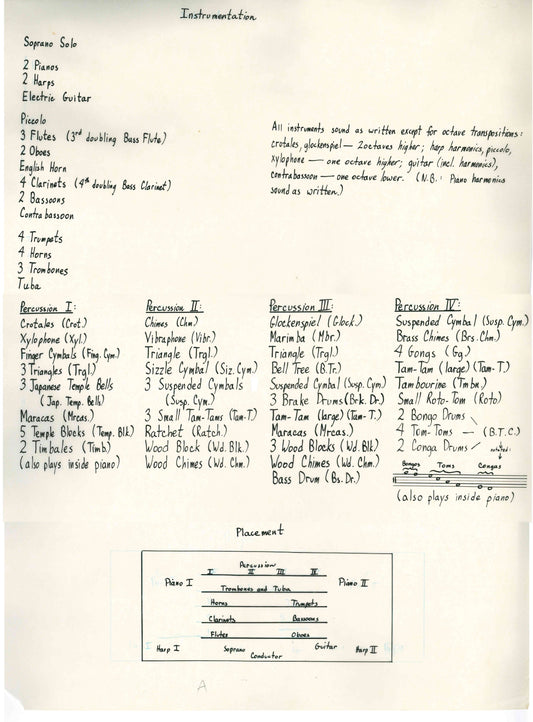 Instrumentation
Soprano Solo
2 Pianos
2 Harps
Electric Guitar
Piccolo
3 Flutes (3rd doubling Bass Flute)
2 Oboes
English Horn
4 Clarinets (4th doubling Bass Clarinet)
2 Bassoons
Contrabassoon
4 Trumpets
4 Horns
3 Trombones
Tuba
All instruments sound as written except for octave transpositions:
crotales, glockenspiel — 2octaves higher; harp harmonics, piccolo,
xylophone — one octave higher; guitar (incl. harmonics),
contrabassoon — one octave lower. (N.B.: Piano harmonics
sound as written.)
Percussion I:
Crotales (Crot.)
Xylophone (Xyl.)
Finger Cymbals (Fing. Cym.)
3 Triangles (Trgl.)
3 Japanese Temple Bells
(Jap. Temp. Bells)
Maracas (Mrcas.)
5 Temple Blocks (Temp. Blk)
2 Timbales (Timb)
(also plays inside piano)
Percussion II:
Chimes (Chm.)
Vibraphone (Vibr.)
Triangle (Trgl.)
Sizzle Cymbal (Siz. Cym.)
3 Suspended Cymbals
(Susp. Cym.)
3 Small Tam-Tams (Tam-T.)
Ratchet (Ratch.)
Wood Block (Wd. Blk.)
Wood Chimes (Wd. Chm.)
Percussion III:
Glockenspiel (Glock.)
Marimba (Mbr.)
Triangle (Trgl.)
Bell Tree (B.Tr.)
Suspended Cymbal (Susp. Cym.)
3 Brake Drums (Brk. Dr.)
Tam-Tam (large) (Tam-T.)
Maracas (Mrcas.)
3 Wood Blocks (Wd. Blk)
Wood Chimes (Wd. Chm.)
Bass Drum (Bs. Dr.)
Percussion IV:
Suspended Cymbal (Susp. Cym.)
Brass Chimes (Brs. Chm.)
4 Gongs (Gg.)
Tam-Tam (large) (Tam-T.)
Tambourine (Tmbn.)
Small Roto-Tom (Roto)
2 Bongo Drums
4 Tom-Toms — (B.T.C.)
2 Conga Drums
notated:
Bongos Toms Congas
(also plays inside piano)
Placement
Percussion
I II III IV
Piano I Piano II
Trombones and Tuba
Horns Trumpets
Clarinets Bassoons
Flutes Oboes
Harp I Soprano Conductor Guitar Harp II
A